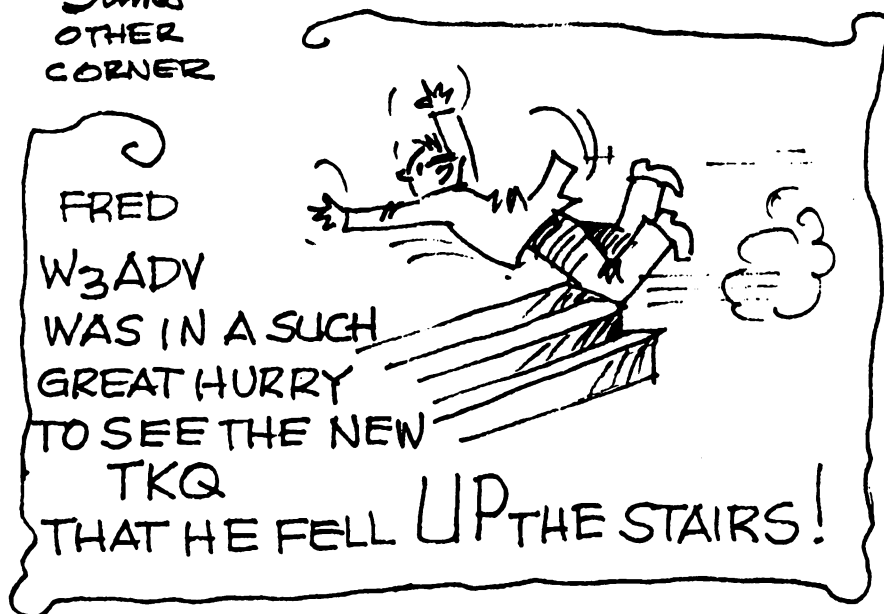 OTHER
CORNER
FRED
W3ADV
WAS IN A SUCH
GREAT HURRY
TO SEE THE NEW
TKQ
THAT HE FELL UP THE STAIRS!